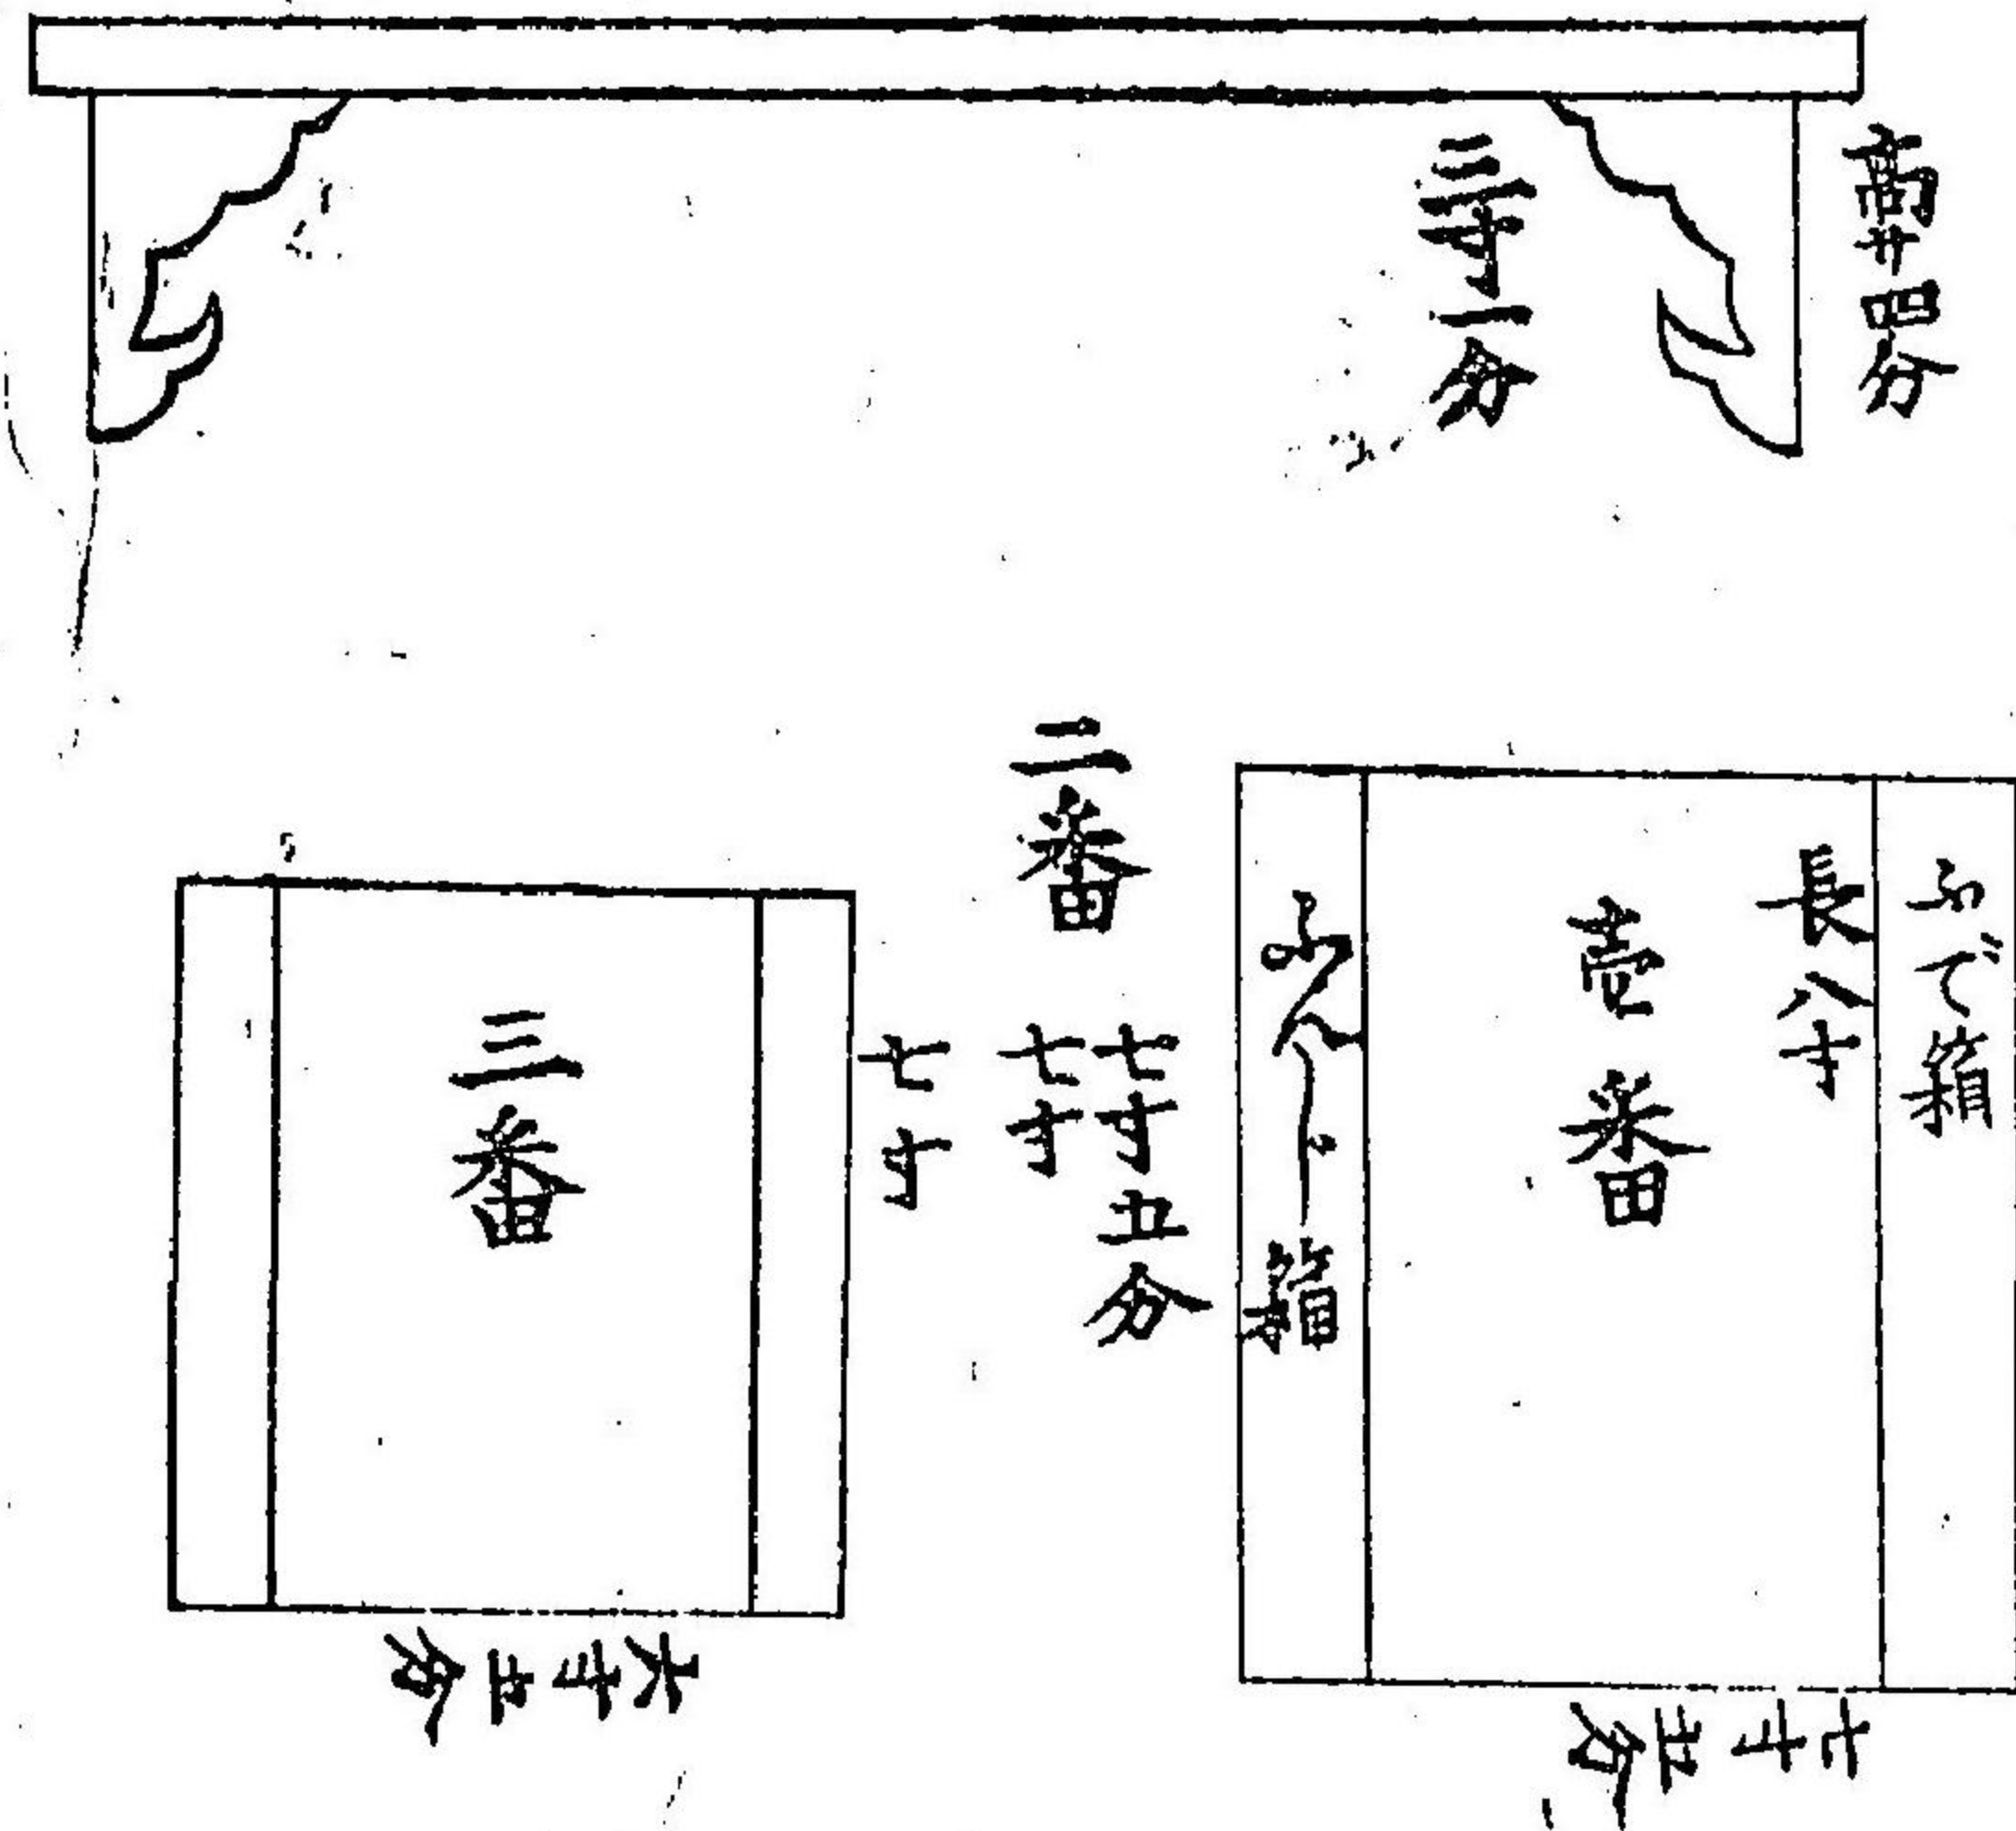 高サ四分
三寸一分
ふで箱
長八寸
壱番
ふんどし箱
七寸五分
二番
七寸五分
七寸
七寸
三番
六寸五分